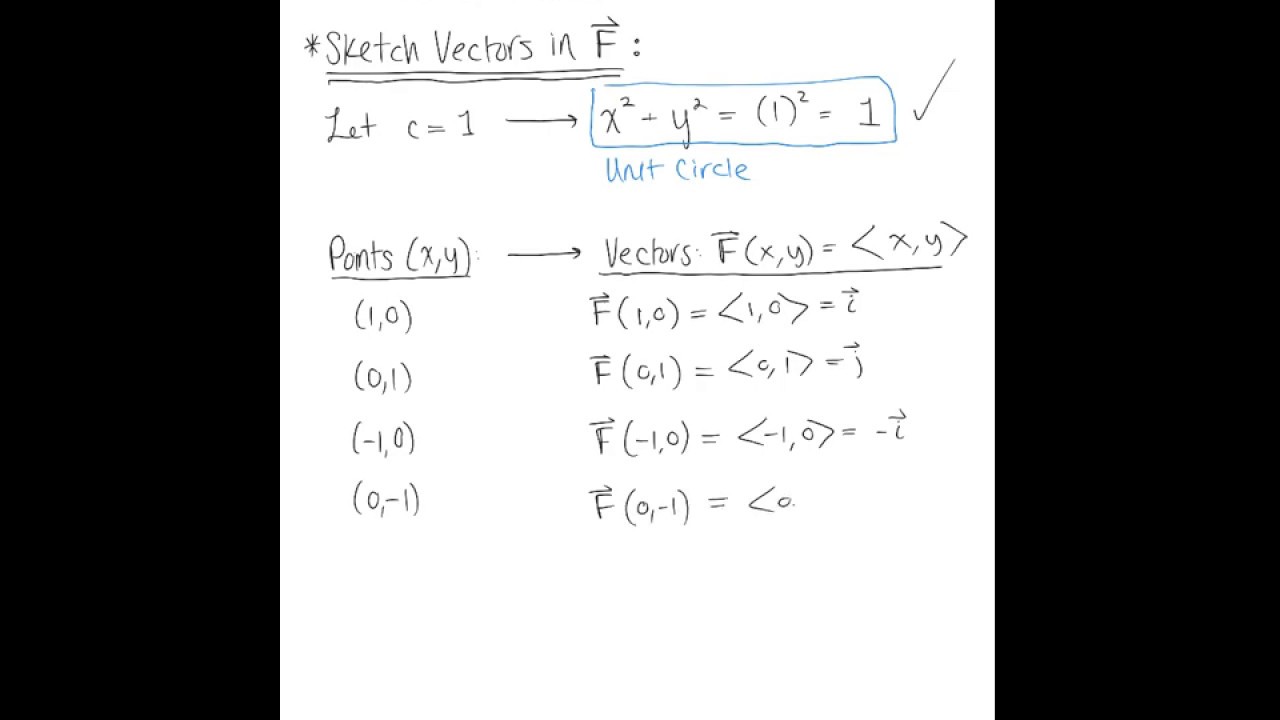 *Sketch Vectors in F⃗ :
Let c = 1 ⟶ x² + y² = (1)² = 1 ✓
Unit Circle
Ponts (x,y): ⟶ Vectors: F⃗(x,y) = <x,y>
(1,0) F⃗(1,0) = <1,0> = i⃗
(0,1) F⃗(0,1) = <0,1> = j⃗
(-1,0) F⃗(-1,0) = <-1,0> = -i⃗
(0,-1) F⃗(0,-1) = <0